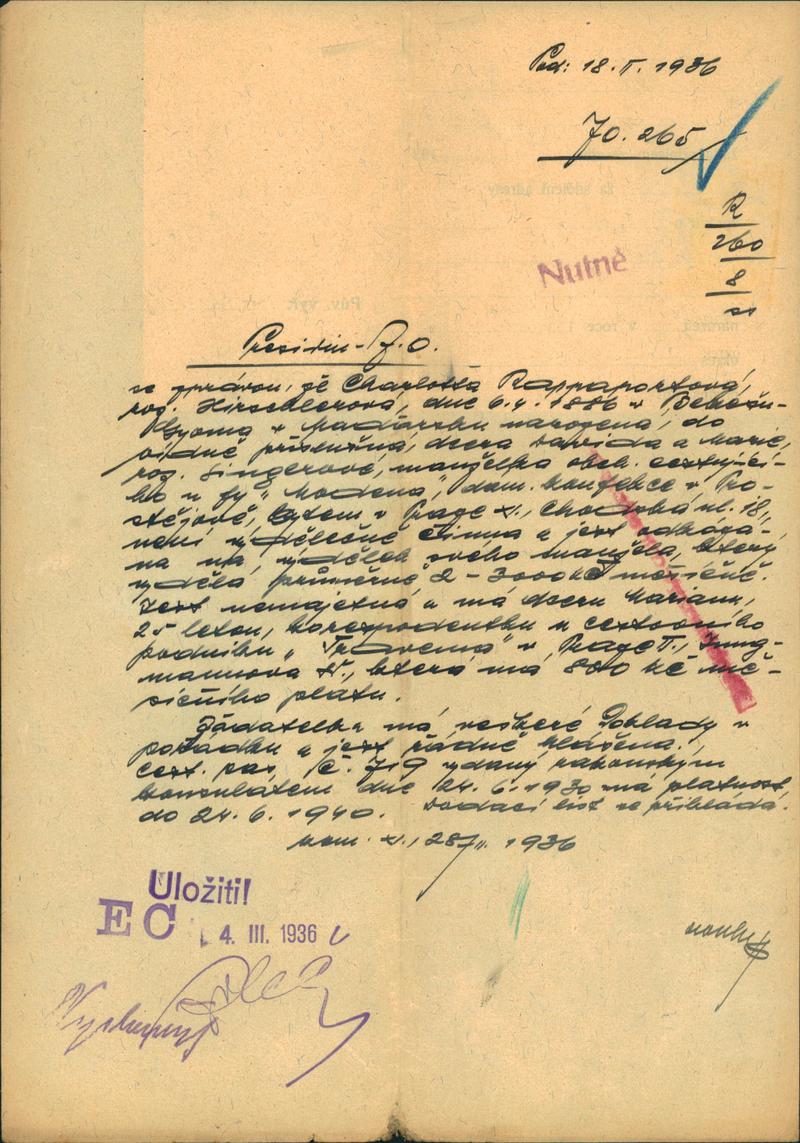 Pod: 18. II. 1936
70.265
R
260
8
Nutné
Presidiu - Z.O.
se zprávou, že Charlotta Rappaportová,
roz. Hirschlerová, dne 6.4.1886 v Bekéš-
Gyoma v Maďarsku narozená, do
Vídně příslušná, dcera Davida a Marie,
roz. Singerové, manželka obch. cestující-
ho u fy „Modena“, dám. konfekce v Pro-
stějově, bytem v Praze XI., Chodská ul. 18,
není výdělečně činna a jest odkázá-
na na výdělek svého manžela, který
vydělá průměrně 2 - 3000 Kč měsíčně.
Jest nemajetná a má dceru Mariann,
25 letou, korespondentku u cestovního
podniku „Travema“ v Praze II., Jung-
mannova ul., která má 800 Kč mě-
síčního platu.
Žadatelka má veškeré doklady v
pořádku a jest řádně hlášena.
Cest. pas, č. 719 vydaný rakouským
konsulátem dne 24. 6. 1930 má platnost
do 24. 6. 1940. Dodací list se přikládá.
kom. XI., 28/II. 1936
Uložiti!
EC 4. III. 1936